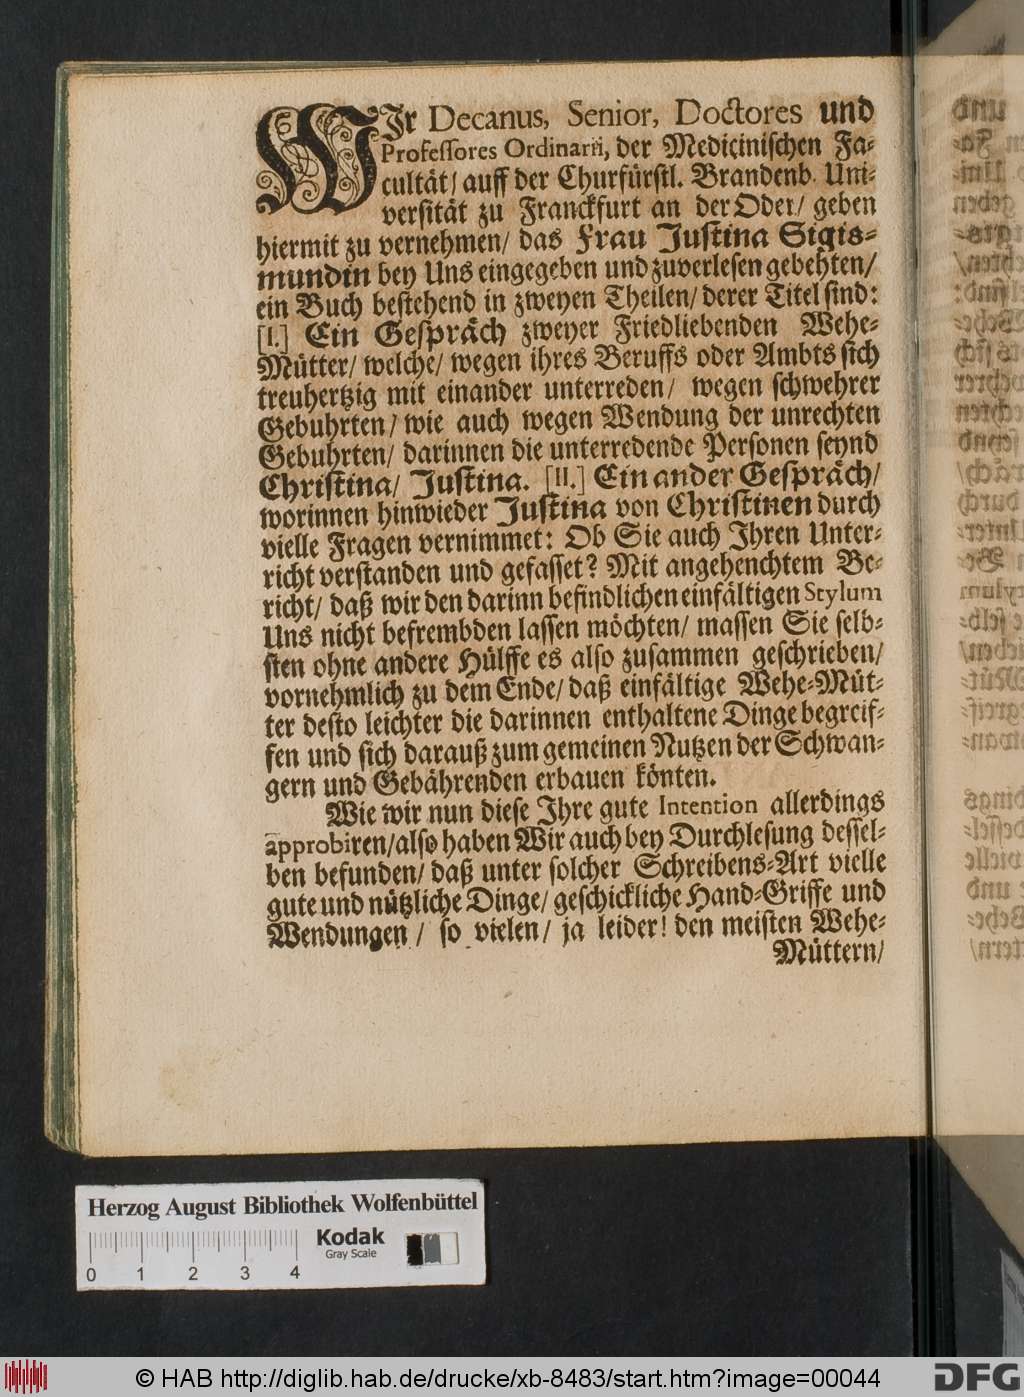 WIr Decanus, Senior, Doctores und
Professores Ordinarii, der Medicinischen Fa-
cultät/ auff der Churfürstl. Brandenb. Uni-
versität zu Franckfurt an der Oder/ geben
hiermit zu vernehmen/ das Frau Justina Sigis-
mundin bey Uns eingegeben und zuverlesen gebehten/
ein Buch bestehend in zweyen Theilen/ derer Titel sind:
[I.] Ein Gespräch zweyer Friedliebenden Wehe-
Mütter/ welche/ wegen ihres Beruffs oder Ambts sich
treuhertzig mit einander unterreden/ wegen schwehrer
Gebuhrten/ wie auch wegen Wendung der unrechten
Gebuhrten/ darinnen die unterredende Personen seynd
Christina/ Justina. [II.] Ein ander Gespräch/
worinnen hinwieder Justina von Christinen durch
vielle Fragen vernimmet: Ob Sie auch Ihren Unter-
richt verstanden und gefasset? Mit angehenchtem Be-
richt/ daß wir den darinn befindlichen einfältigen Stylum
Uns nicht befrembden lassen möchten/ massen Sie selb-
sten ohne andere Hülffe es also zusammen geschrieben/
vornehmlich zu dem Ende/ daß einfältige Wehe-Müt-
ter desto leichter die darinnen enthaltene Dinge begreif-
fen und sich darauß zum gemeinen Nutzen der Schwan-
gern und Gebährenden erbauen könten.
Wie wir nun diese Ihre gute Intention allerdings
approbiren/ also haben Wir auch bey Durchlesung dessel-
ben befunden/ daß unter solcher Schreibens-Art vielle
gute und nützliche Dinge/ geschickliche Hand-Griffe und
Wendungen/ so vielen/ ja leider! den meisten Wehe-
Müttern/
Herzog August Bibliothek Wolfenbüttel
Kodak
Gray Scale
0 1 2 3 4
© HAB http://diglib.hab.de/drucke/xb-8483/start.htm?image=00044
DFG